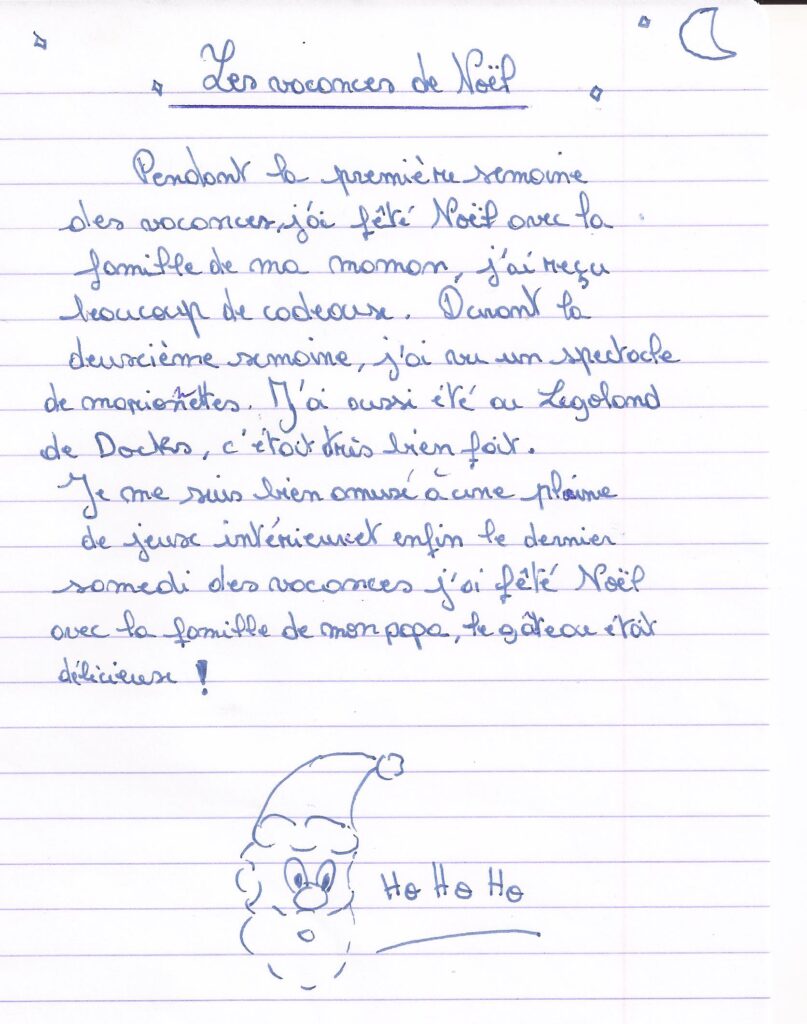 Les vacances de Noël
Pendant la première semaine
des vacances, j'ai fêté Noël avec la
famille de ma maman, j'ai reçu
beaucoup de cadeaux. Durant la
deuxième semaine, j'ai vu un spectacle
de marionettes. J'ai aussi été au Legoland
de Docks, c'était très bien fait.
Je me suis bien amusé à une plaine
de jeux intérieur et enfin le dernier
samedi des vacances j'ai fêté Noël
avec la famille de mon papa, le gâteau était
délicieux !
Ho Ho Ho